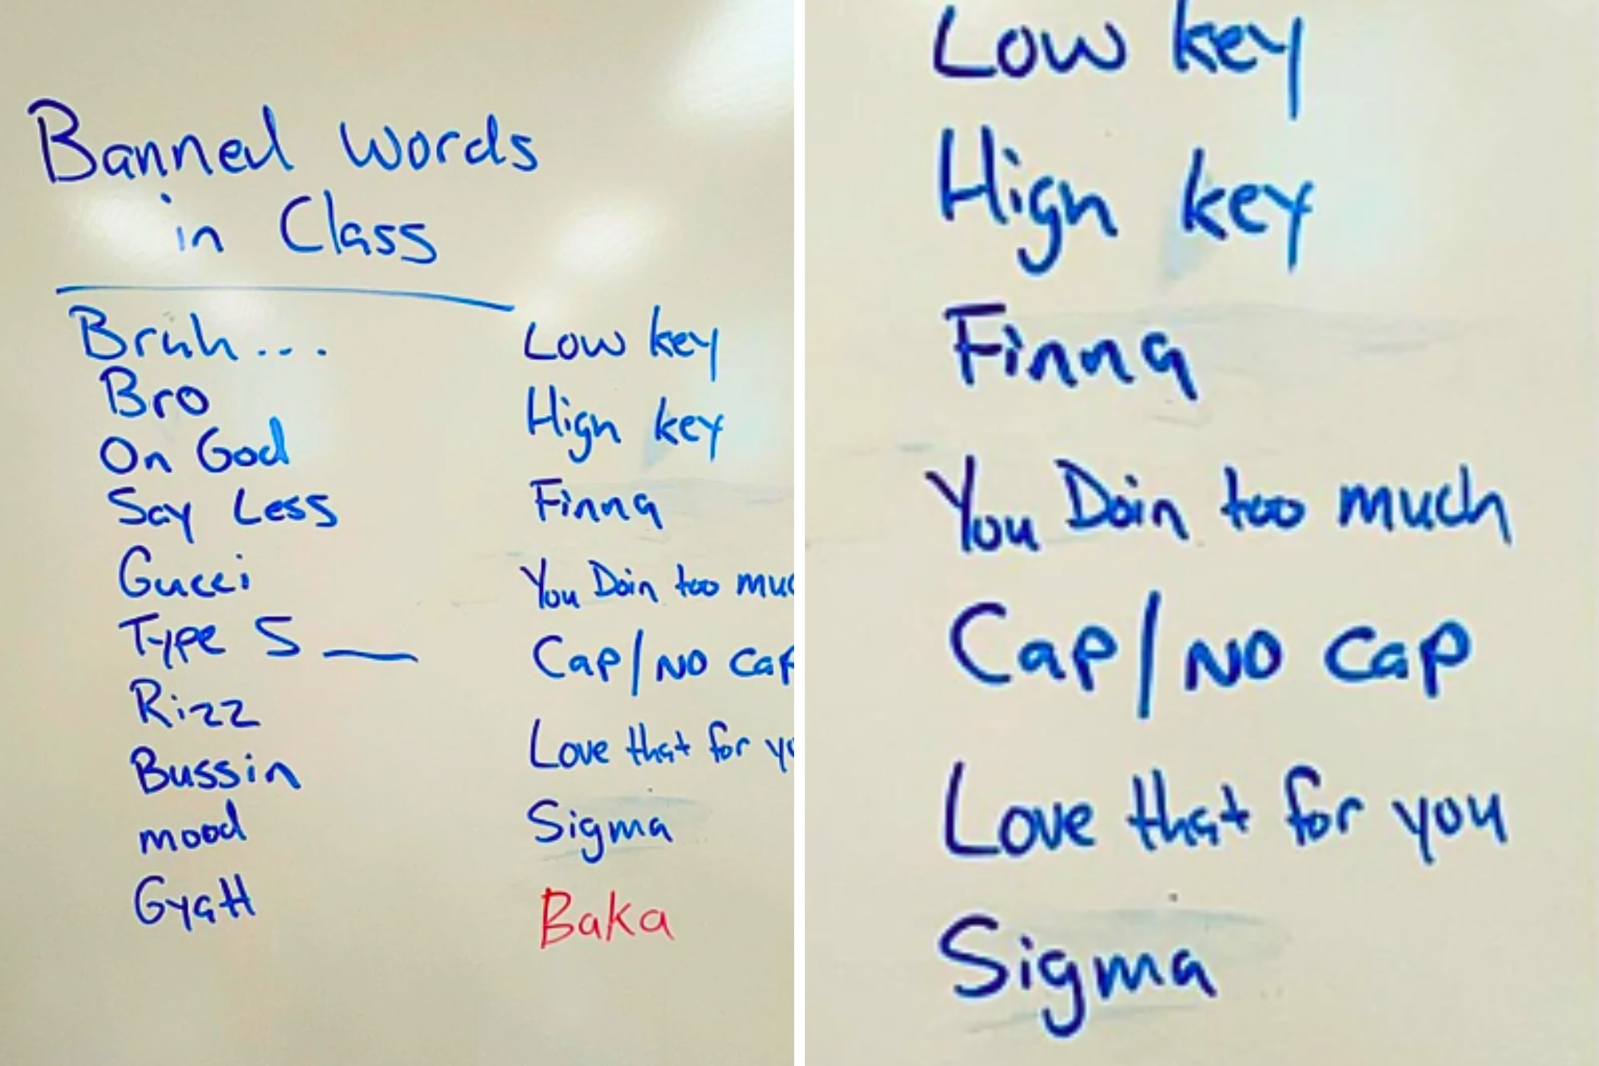 Banned Words
in Class
Bruh...
Bro
On God
Say Less
Gucci
Type S __
Rizz
Bussin
mood
Gyatt
Low key
High key
Finna
You Doin too muc
Cap/NO cap
Love that for yo
Sigma
Baka
Low key
High key
Finna
You Doin too much
Cap/NO cap
Love that for you
Sigma